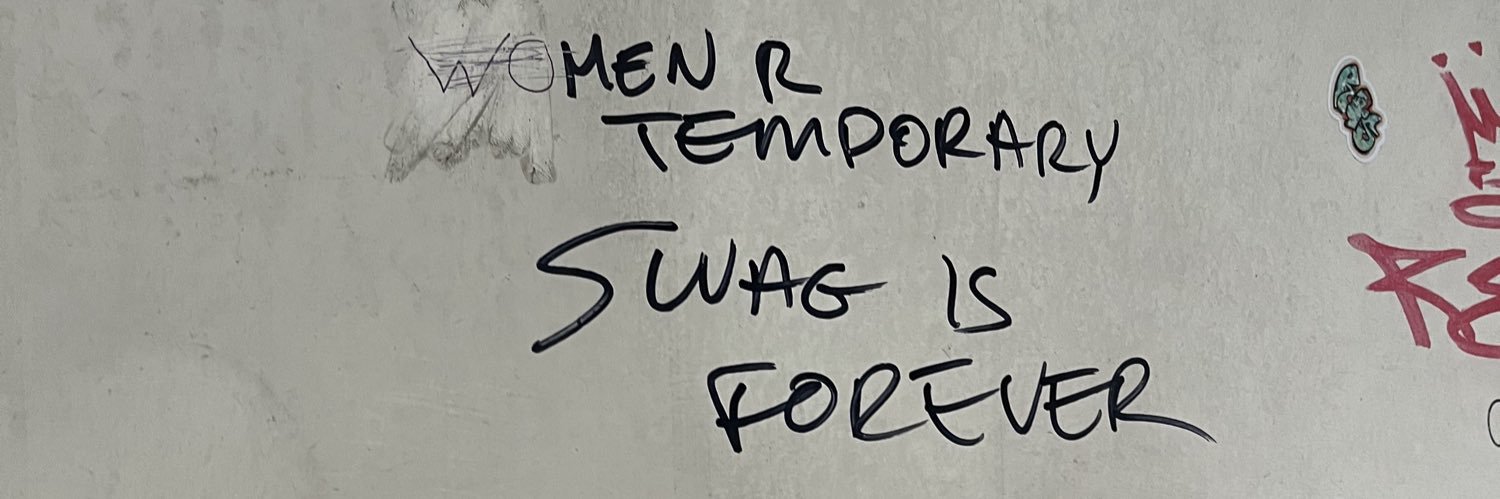 WOMEN R
TEMPORARY
SWAG IS
FOREVER